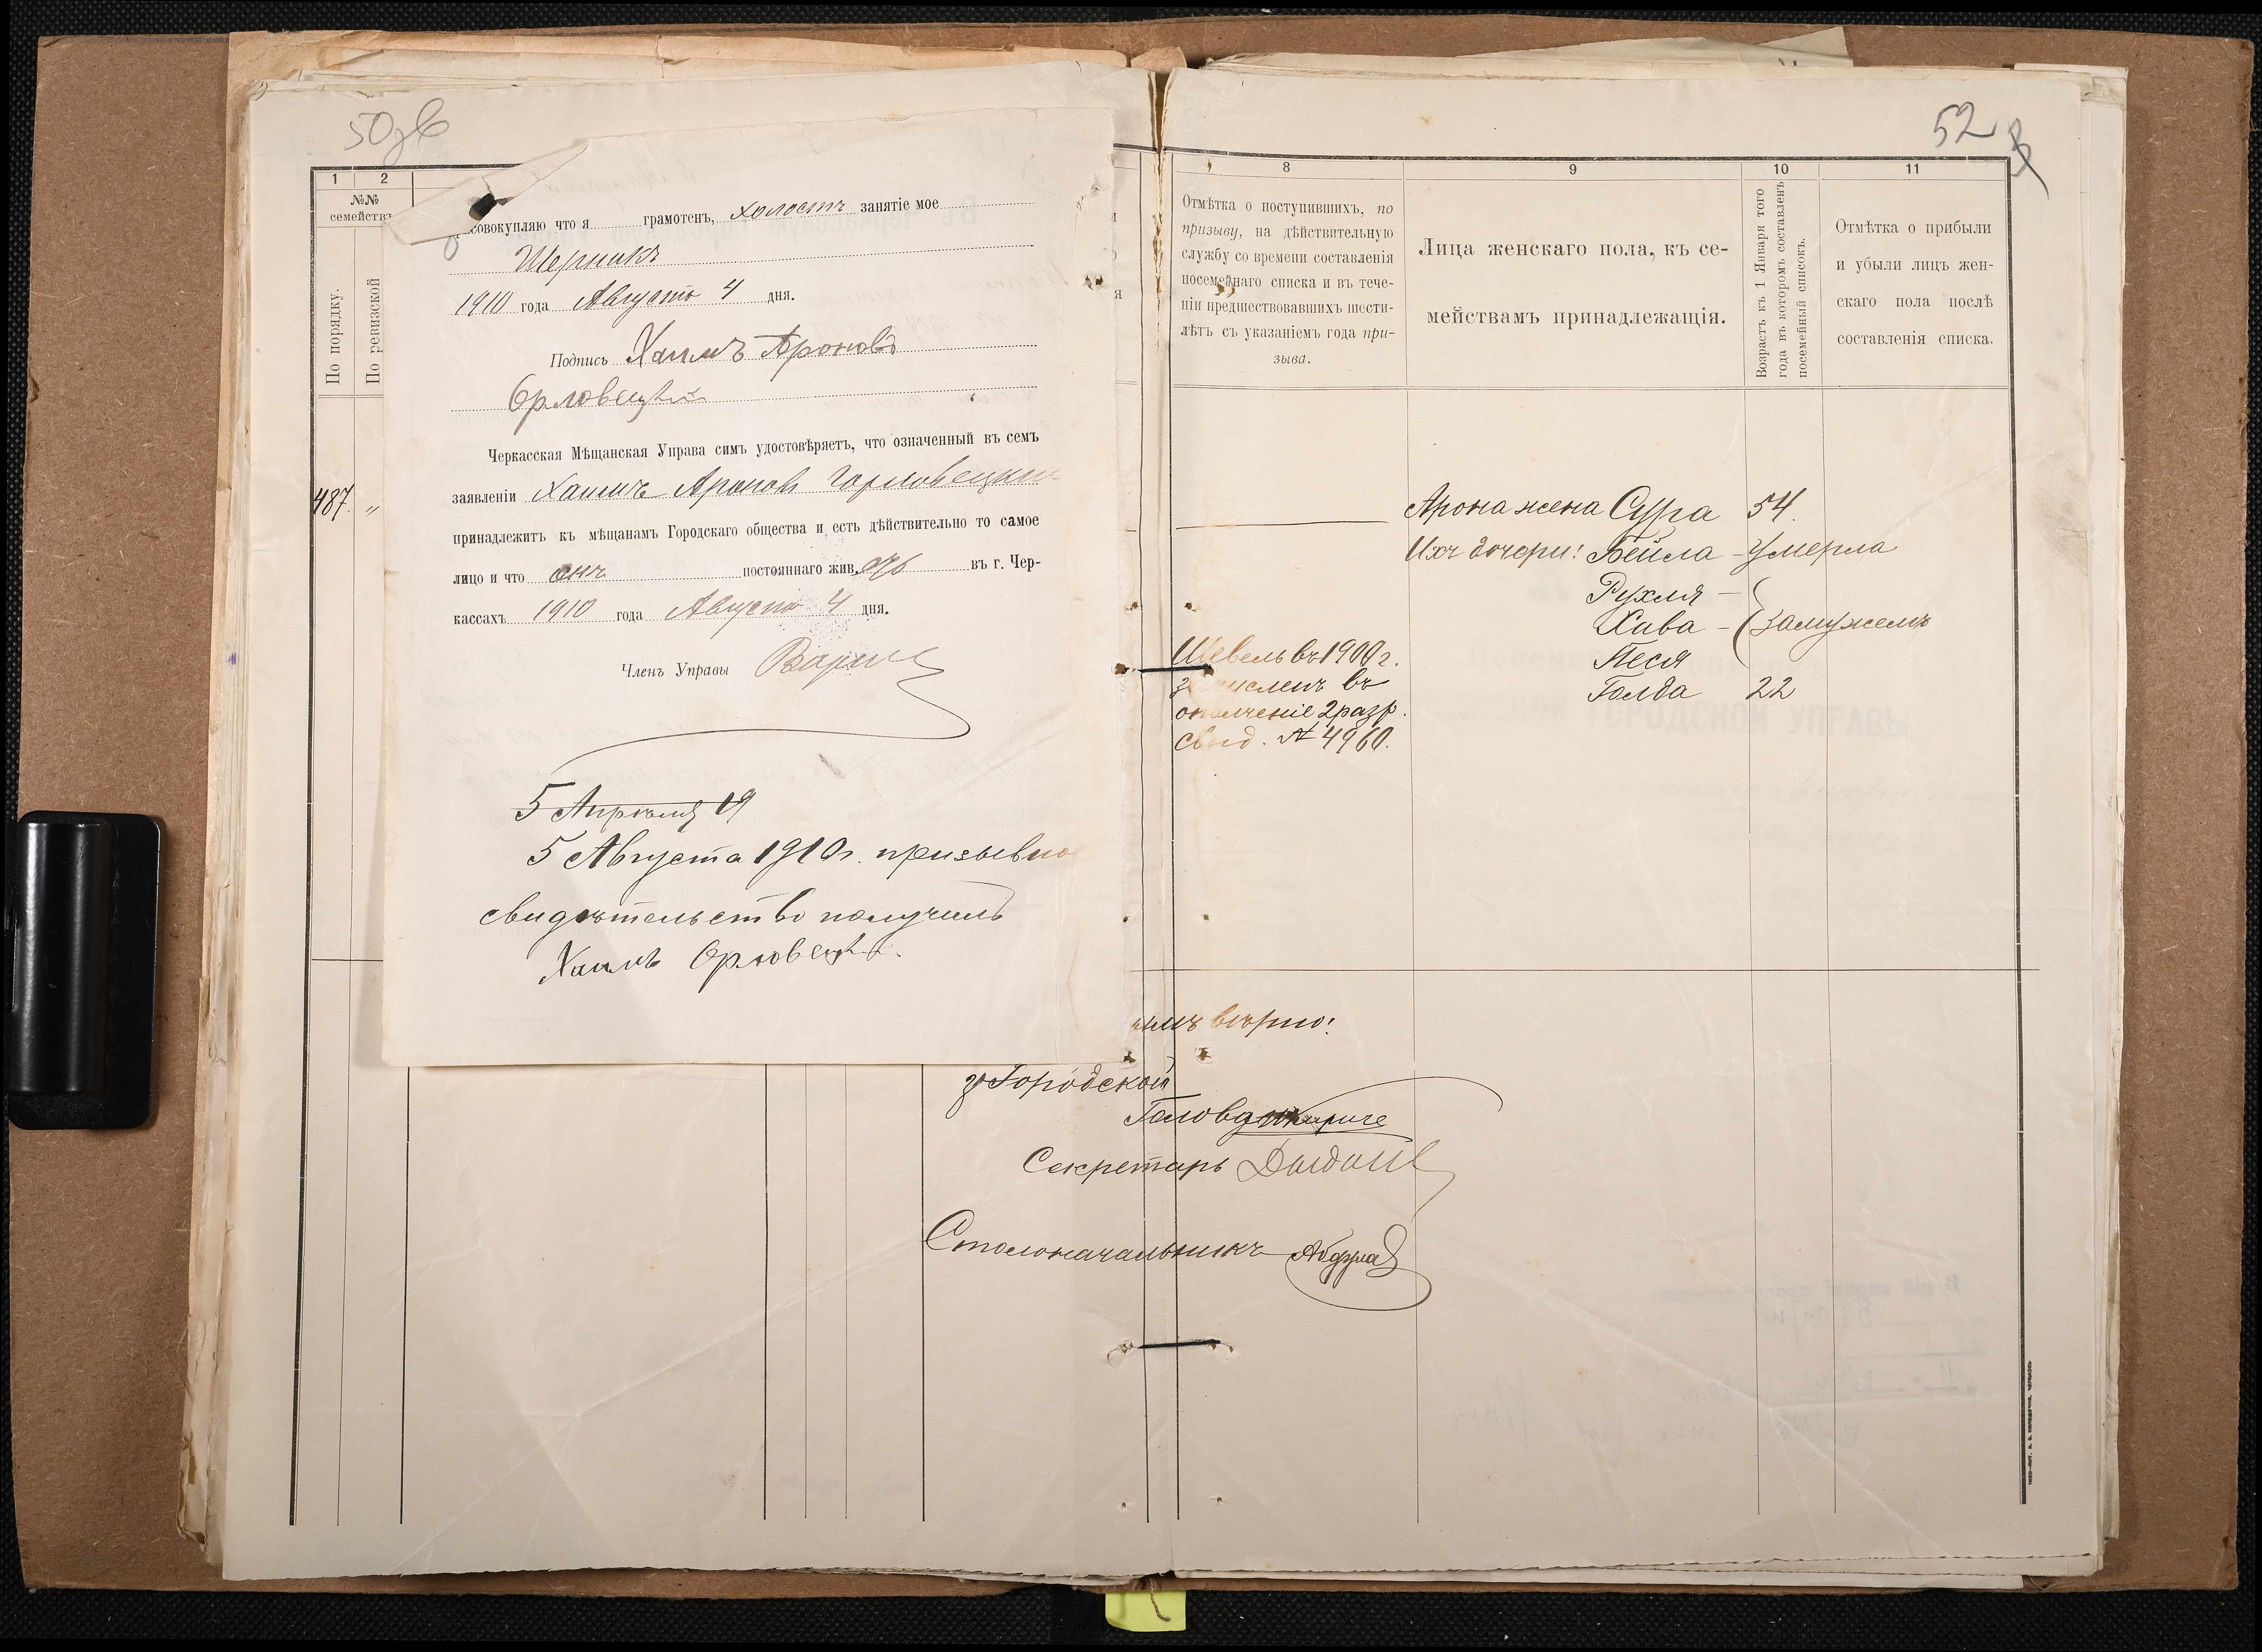 50
52
1
2
№№
семействъ
По порядку.
По ревизской
487.
"
совокупляю что я грамотенъ, холостъ занятіе мое
Шерникъ
1910 года Августа 4 дня.
Подпись Хаимъ Ароновъ
Орловецкій
Черкасская Мѣщанская Управа симъ удостовѣряетъ, что означенный въ семъ
заявленіи Хаимъ Ароновъ Горловецкій
принадлежитъ къ мѣщанамъ Городскаго общества и есть дѣйствительно то самое
лицо и что онъ постояннаго жив.етъ въ г. Чер-
кассахъ 1910 года Августа 4 дня.
Членъ Управы
5 Апрѣля 19
5 Августа 1910 г. призывно
свидѣтельство получилъ
Хаимъ Орловецкі
8
Отмѣтка о поступившихъ, по
призыву, на дѣйствительную
службу со времени составленія
посемейнаго списка и въ тече-
ніи предшествовавшихъ шести-
лѣтъ съ указаніемъ года при-
зыва.
9
Лица женскаго пола, къ се-
мействамъ принадлежащія.
10
Возрастъ къ 1 Января того
года въ которомъ составленъ
посемейный списокъ.
11
Отмѣтка о прибыли
и убыли лицъ жен-
скаго пола послѣ
составленія списка.
Арона жена Сура 54.
Ихъ дочери: Бейла - умерла
Рухля -
Хава - замужемъ
Песя
Голда 22
Шевель въ 1900 г.
зачисленъ въ
ополченіе 2 разр.
свид. № 4960.
вѣрно:
за Городской
Голова
Секретарь
Столоначальникъ